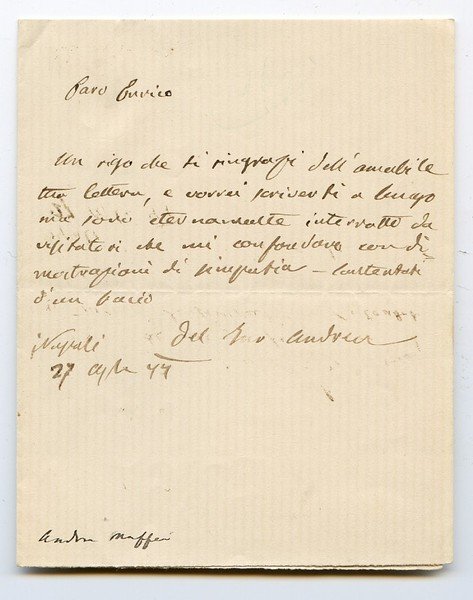 Caro Enrico
Un rigo che ti ringrazi dell'amabile
tua lettera, e vorrei scriverti a lungo
ma sono eternamente interrotto da
visitatori che mi confondono con di
mostrazioni di simpatia – Contentati
d'un bacio
del tuo Andrea
Napoli
27 77
Andrea Maffei